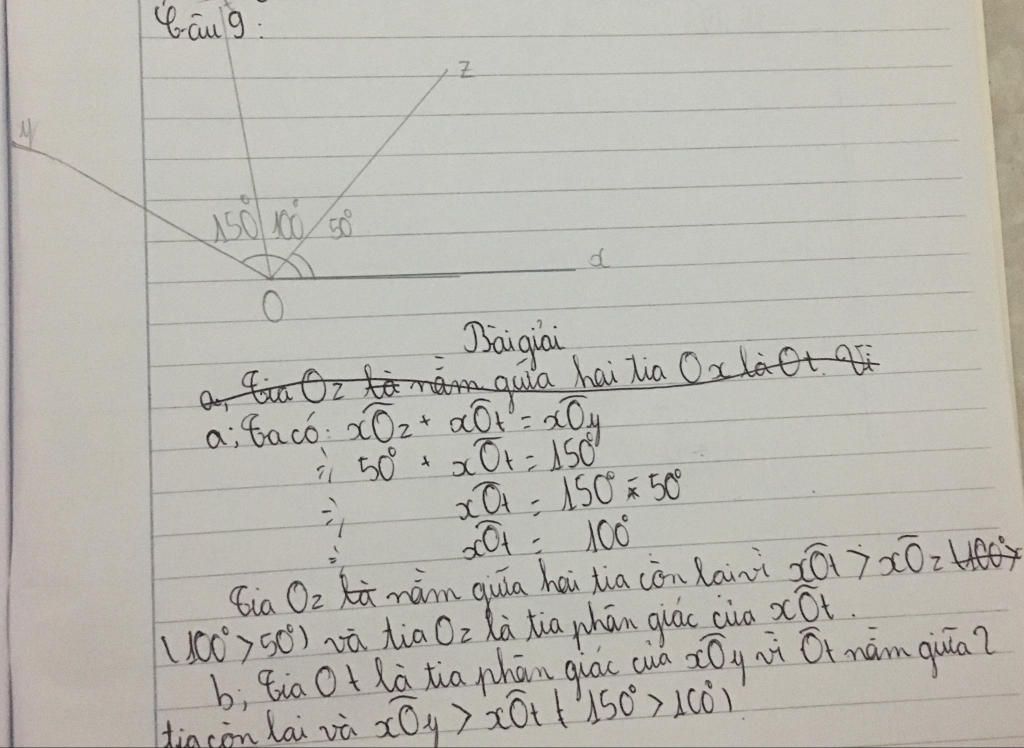 Câu 9:
z
y
150° 100° 50°
x
O
Bài giải
a, Tia Oz là nằm giữa hai tia Ox là Ot. Vì
a; Ta có: xOz + xOt = xOy
=> 50° + xOt = 150°
=> xOt = 150° - 50°
=> xOt = 100°
Tia Oz là nằm giữa hai tia còn lại vì xOt > xOz (100°>
(100° > 50°) và tia Oz là tia phân giác của xOt.
b; Tia Ot là tia phân giác của xOy vì Ot nằm giữa 2
tia còn lại và xOy > xOt ( 150° > 100°)